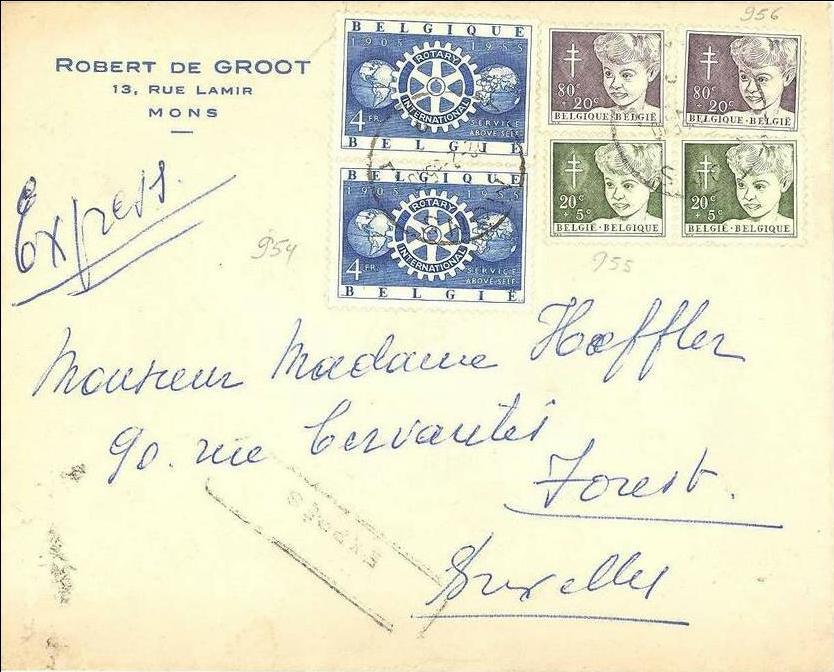 956
ROBERT DE GROOT
13, RUE LAMIR
MONS
BELGIQUE
1905 1955
ROTARY
INTERNATIONAL
4 FR.
SERVICE
ABOVE SELF
BELGIË
BELGIQUE
1905 1955
ROTARY
INTERNATIONAL
4 FR.
SERVICE
ABOVE SELF
BELGIË
80c
+ 20c
BELGIQUE·BELGIË
80c
+ 20c
BELGIQUE·BELGIË
20c
+ 5c
BELGIË·BELGIQUE
20c
+ 5c
BELGIË·BELGIQUE
Express.
954
955
Monsieur Madame Hoeffler
90. rue Cervantès
Forest.
EXPRÈS
EXPRÈS
Bruxelles